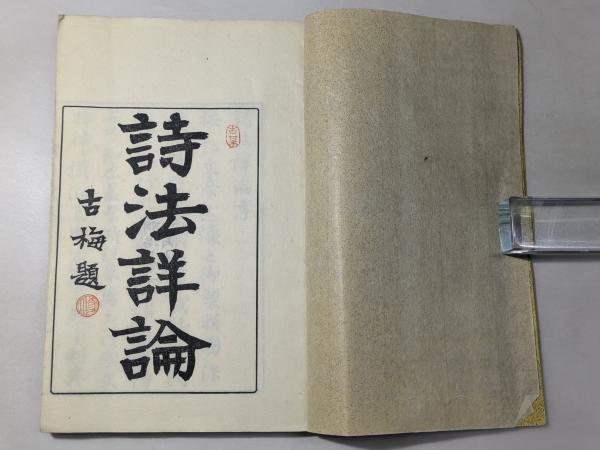 詩法詳論
古梅題